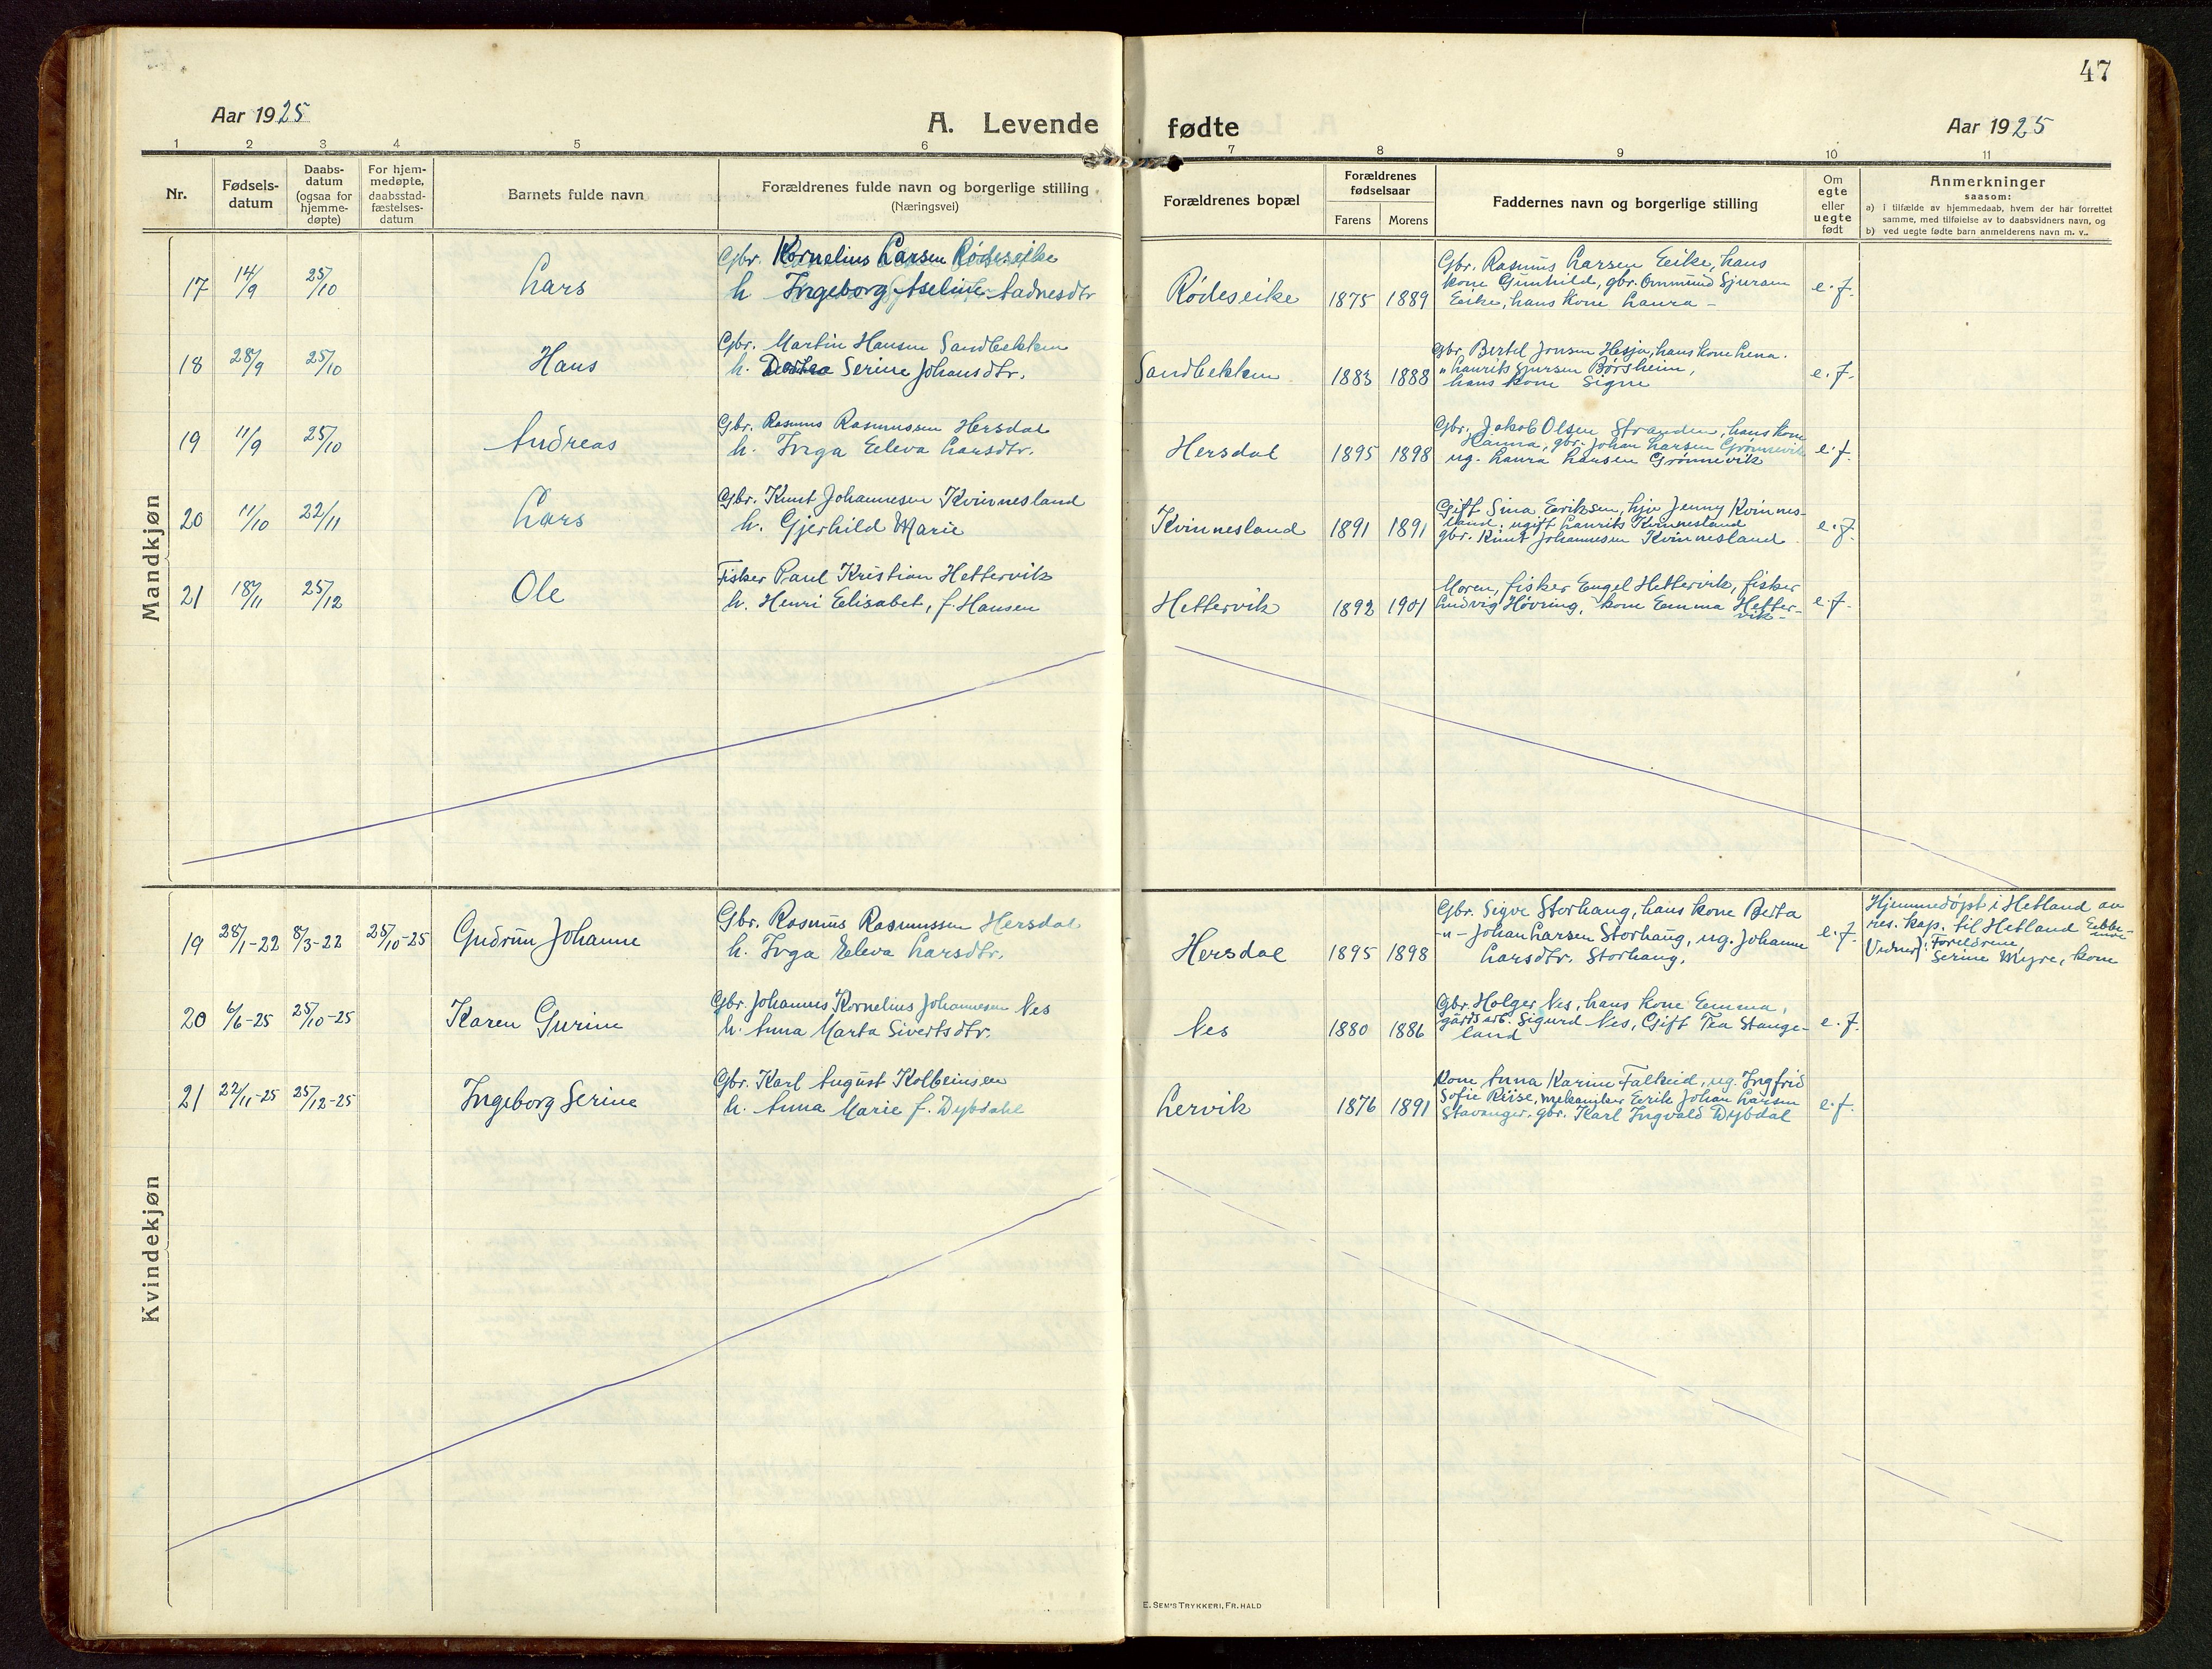 47
Aar 1925
A. Levende fødte
Aar 1925
1 2 3 4 5 6 7 8 9 10 11
Nr.
Fødsels-
datum
Daabs-
datum
(ogsaa for
hjemme-
døpte)
For hjem-
medøpte,
daabsstad-
fæstelses-
datum
Barnets fulde navn
Forældrenes fulde navn og borgerlige stilling
(Næringsvei)
Forældrenes bopæl
Forældrenes
fødselsaar
Farens Morens
Faddernes navn og borgerlige stilling
Om
egte
eller
uegte
født
Anmerkninger
saasom:
a) i tilfælde av hjemmedaab, hvem der har forrettet
samme, med tilføielse av to daabsvidners navn, og
b) ved uegte fødte barn anmelderens navn m. v..
Mandkjøn
17 14/9 25/10 Lars
Gbr. Kornelius Larsen Rødeseike
h. Ingeborg Aseline Aadnesdtr
Rødeseike 1875 1889
Gbr. Rasmus Larsen Eeike, hans
kone Gunhild, gbr. Ommund Sjursen
Eeike, hans kone Laura -
e. f.
18 28/9 25/10 Hans
Gbr. Martin Hansen Sandbekken
h. Dortea Serine Johansdtr.
Sandbekken 1883 1888
Gbr. Bertel Jonsen Hesja, hans kone Lena.
" Laurits Sjursen Børsheim,
hans kone Signe
e. f.
19 11/9 25/10 Andreas
Gbr. Rasmus Rasmussen Hersdal
h. Inga Eeleva Larsdtr.
Hersdal 1895 1898
Gbr. Jakob Olsen Stranden, hans kone
Hanna, gbr. Johan Larsen Grønnevik
ug. Laura Larsen Grønnevik
e. f.
20 11/10 22/11 Lars
Gbr. Knut Johannesen Kvinnesland
h. Gjerhild Marie
Kvinnesland 1891 1891
Gift Sina Eeriksen, hju Jenny Kvinnes-
land, ugift Laurits Kvinnesland
gbr. Knut Johannesen Kvinnesland.
e. f.
21 18/11 25/12 Ole
Fisker Paul Kristian Hettervik
h. Henri Eelisabet, f. Hansen
Hettervik 1892 1901
Moren, fisker Engel Hettervik, fisker
Ludvig Høvring, kone Eemma Hetter-
vik-
e. f.
Kvindekjøn
19 28/1-22 8/3-22 25/10-25 Gudrun Johanne
Gbr. Rasmus Rasmussen Hersdal
h. Inga Eeleva Larsdtr.
Hersdal 1895 1898
Gbr. Sigve Storhaug, hans kone Berta
-"- Johan Larsen Storhaug, ug. Johanne
Larsdtr. Storhaug.
e. f.
Hjemmedøpt i Hetland av
res. kap. til Hetland
Vidner: Foreldrene,
Serine Myre, kone
20 6/6-25 25/10-25 Karen Gurine
Gbr. Johannes Kornelius Johannesen Nes
h. Anna Marta Sivertsdtr.
Nes 1880 1886
Gbr. Holger Nes, hans kone Eemma,
gårdsarb. Sigurd Nes, Gift Tea Stange-
land
e. f.
21 22/11-25 25/12-25 Ingeborg Serine
Gbr. Karl August Kolbeinsen
h. Anna Marie f. Dybdahl
Lervik 1876 1891
Kone Anna Karine Falkeid, ug. Ingfrid
Sofie Riise, mekaniker Eerik Johan Larsen
Stavanger, gbr. Karl Ingvald Dybdal
e. f.
E. SEM'S TRYKKERI, FR. HALD